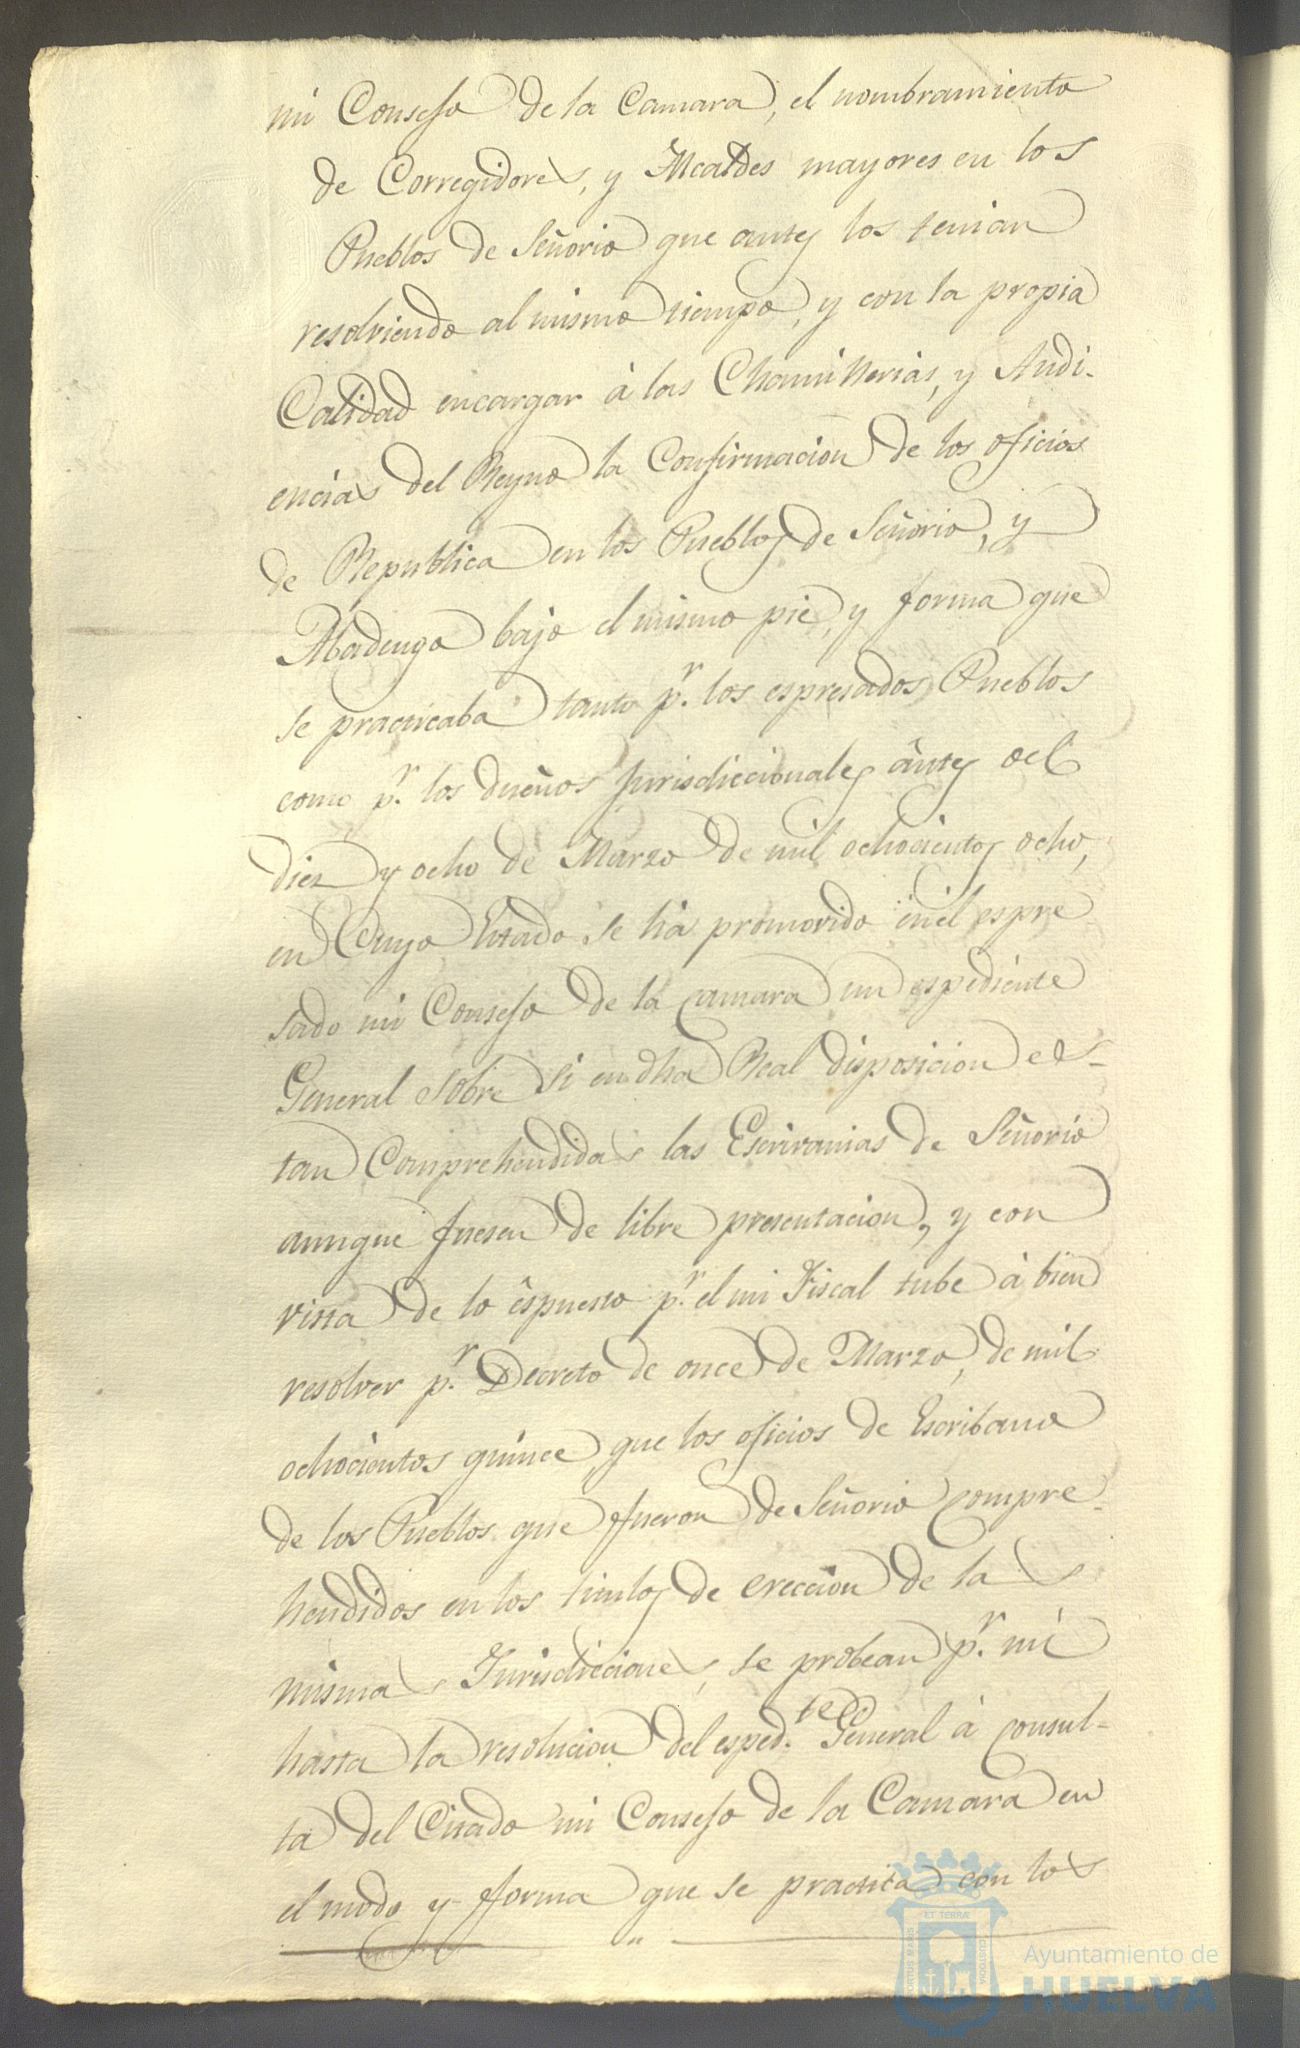 mi Consejo de la Camara, el nombramiento
de Corregidores, y Alcaldes mayores en los
Pueblos de Señorio que antes los tenian
resolviendo al mismo tiempo, y con la propia
Calidad encargar à las Chancillerias, y Audi-
encias del Reyno la Confirmacion de los oficios
de Republica en los Pueblos de Señorio, y
Abadengo bajo el mismo pie, y forma que
se practicaba tanto pr. los espresados Pueblos
como pr. los dueños Jurisdiccionales antes del
diez y ocho de Marzo de mil ochocientos ocho,
en Cuyo Estado, se há promovido en el espre
sado mi Consejo de la Camara un espediente
General sobre si en dha Real disposicion es-
tan Comprehendidas las Escrivanias de Señorio
aunque fuesen de libre presentacion, y con
vista de lo espuesto pr. el mi Fiscal tube à bien
resolver pr. Decreto de once de Marzo, de mil
ochocientos quince, que los oficios de Escribano
de los Pueblos que fueron de Señorio compre-
hendidos en los titulos de ereccion de las
mismas Jurisdicciones, se probean pr. mi
hasta la resolucion del espedte. General à consul-
ta del Citado mi Consejo de la Camara en
el modo y forma que se practica con los
ET TERRÆ
PORTUS MARIS
CUSTODIA
Ayuntamiento de
HUELVA